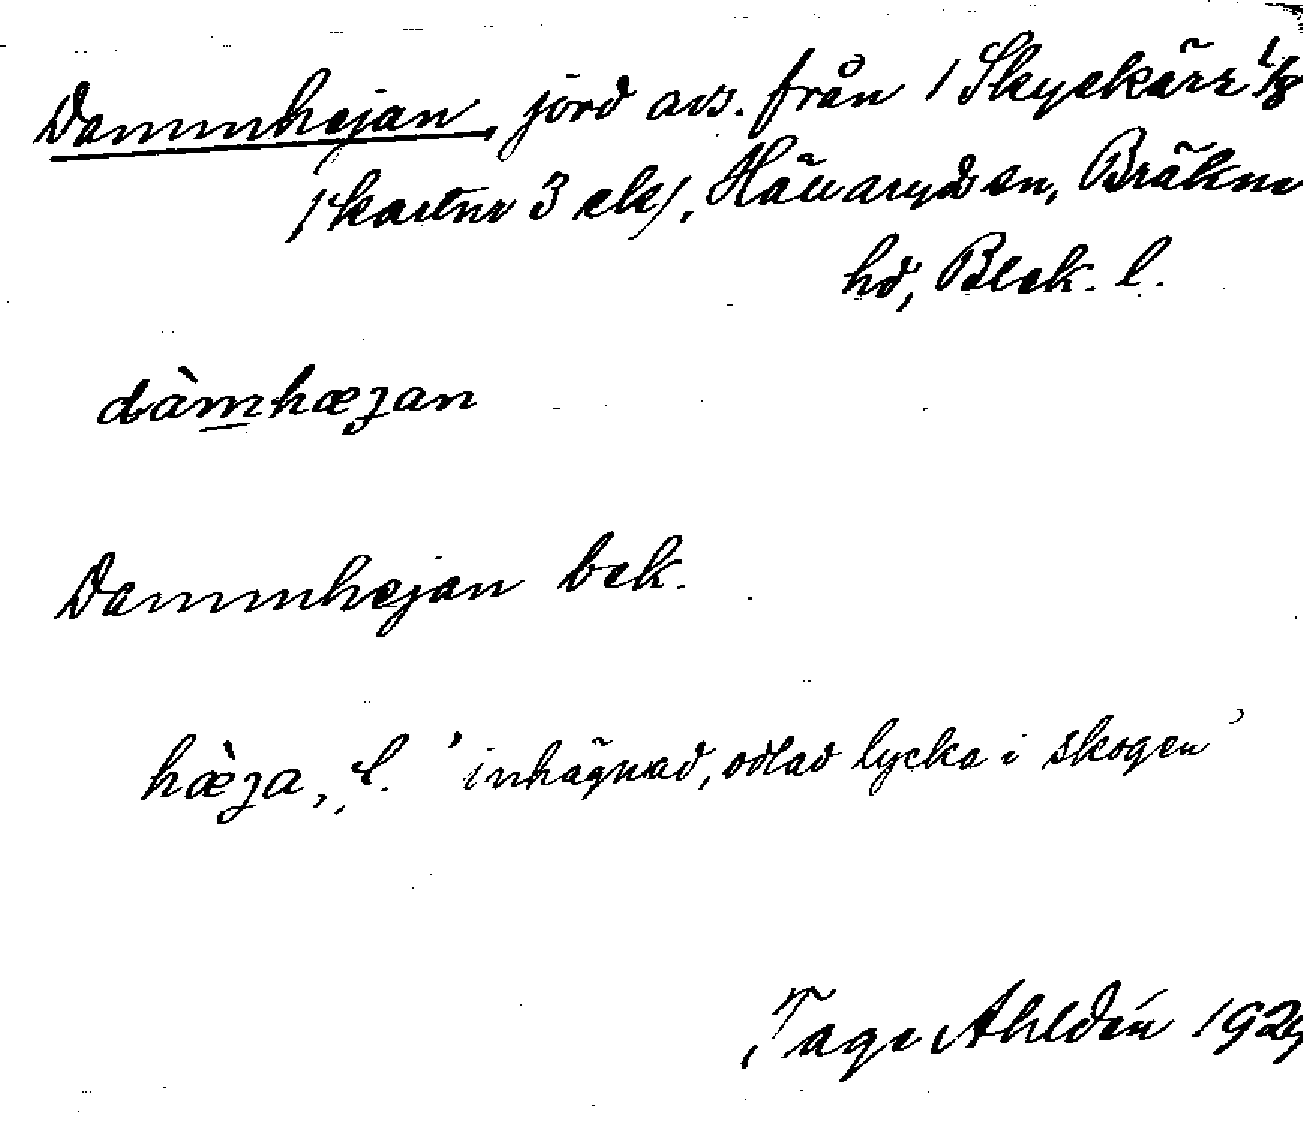 Dammhejan, jord avs. från 1 Skyekärr 1/8
(kartnr 3 ek), Hällaryds sn, Bräkne
hd, Blek. l.
dàmhæʒan
Dammhejan bek.
hæ̀ʒa, f. 'inhägnad, odlad lycka i skogen'
Tage Ahldén 192